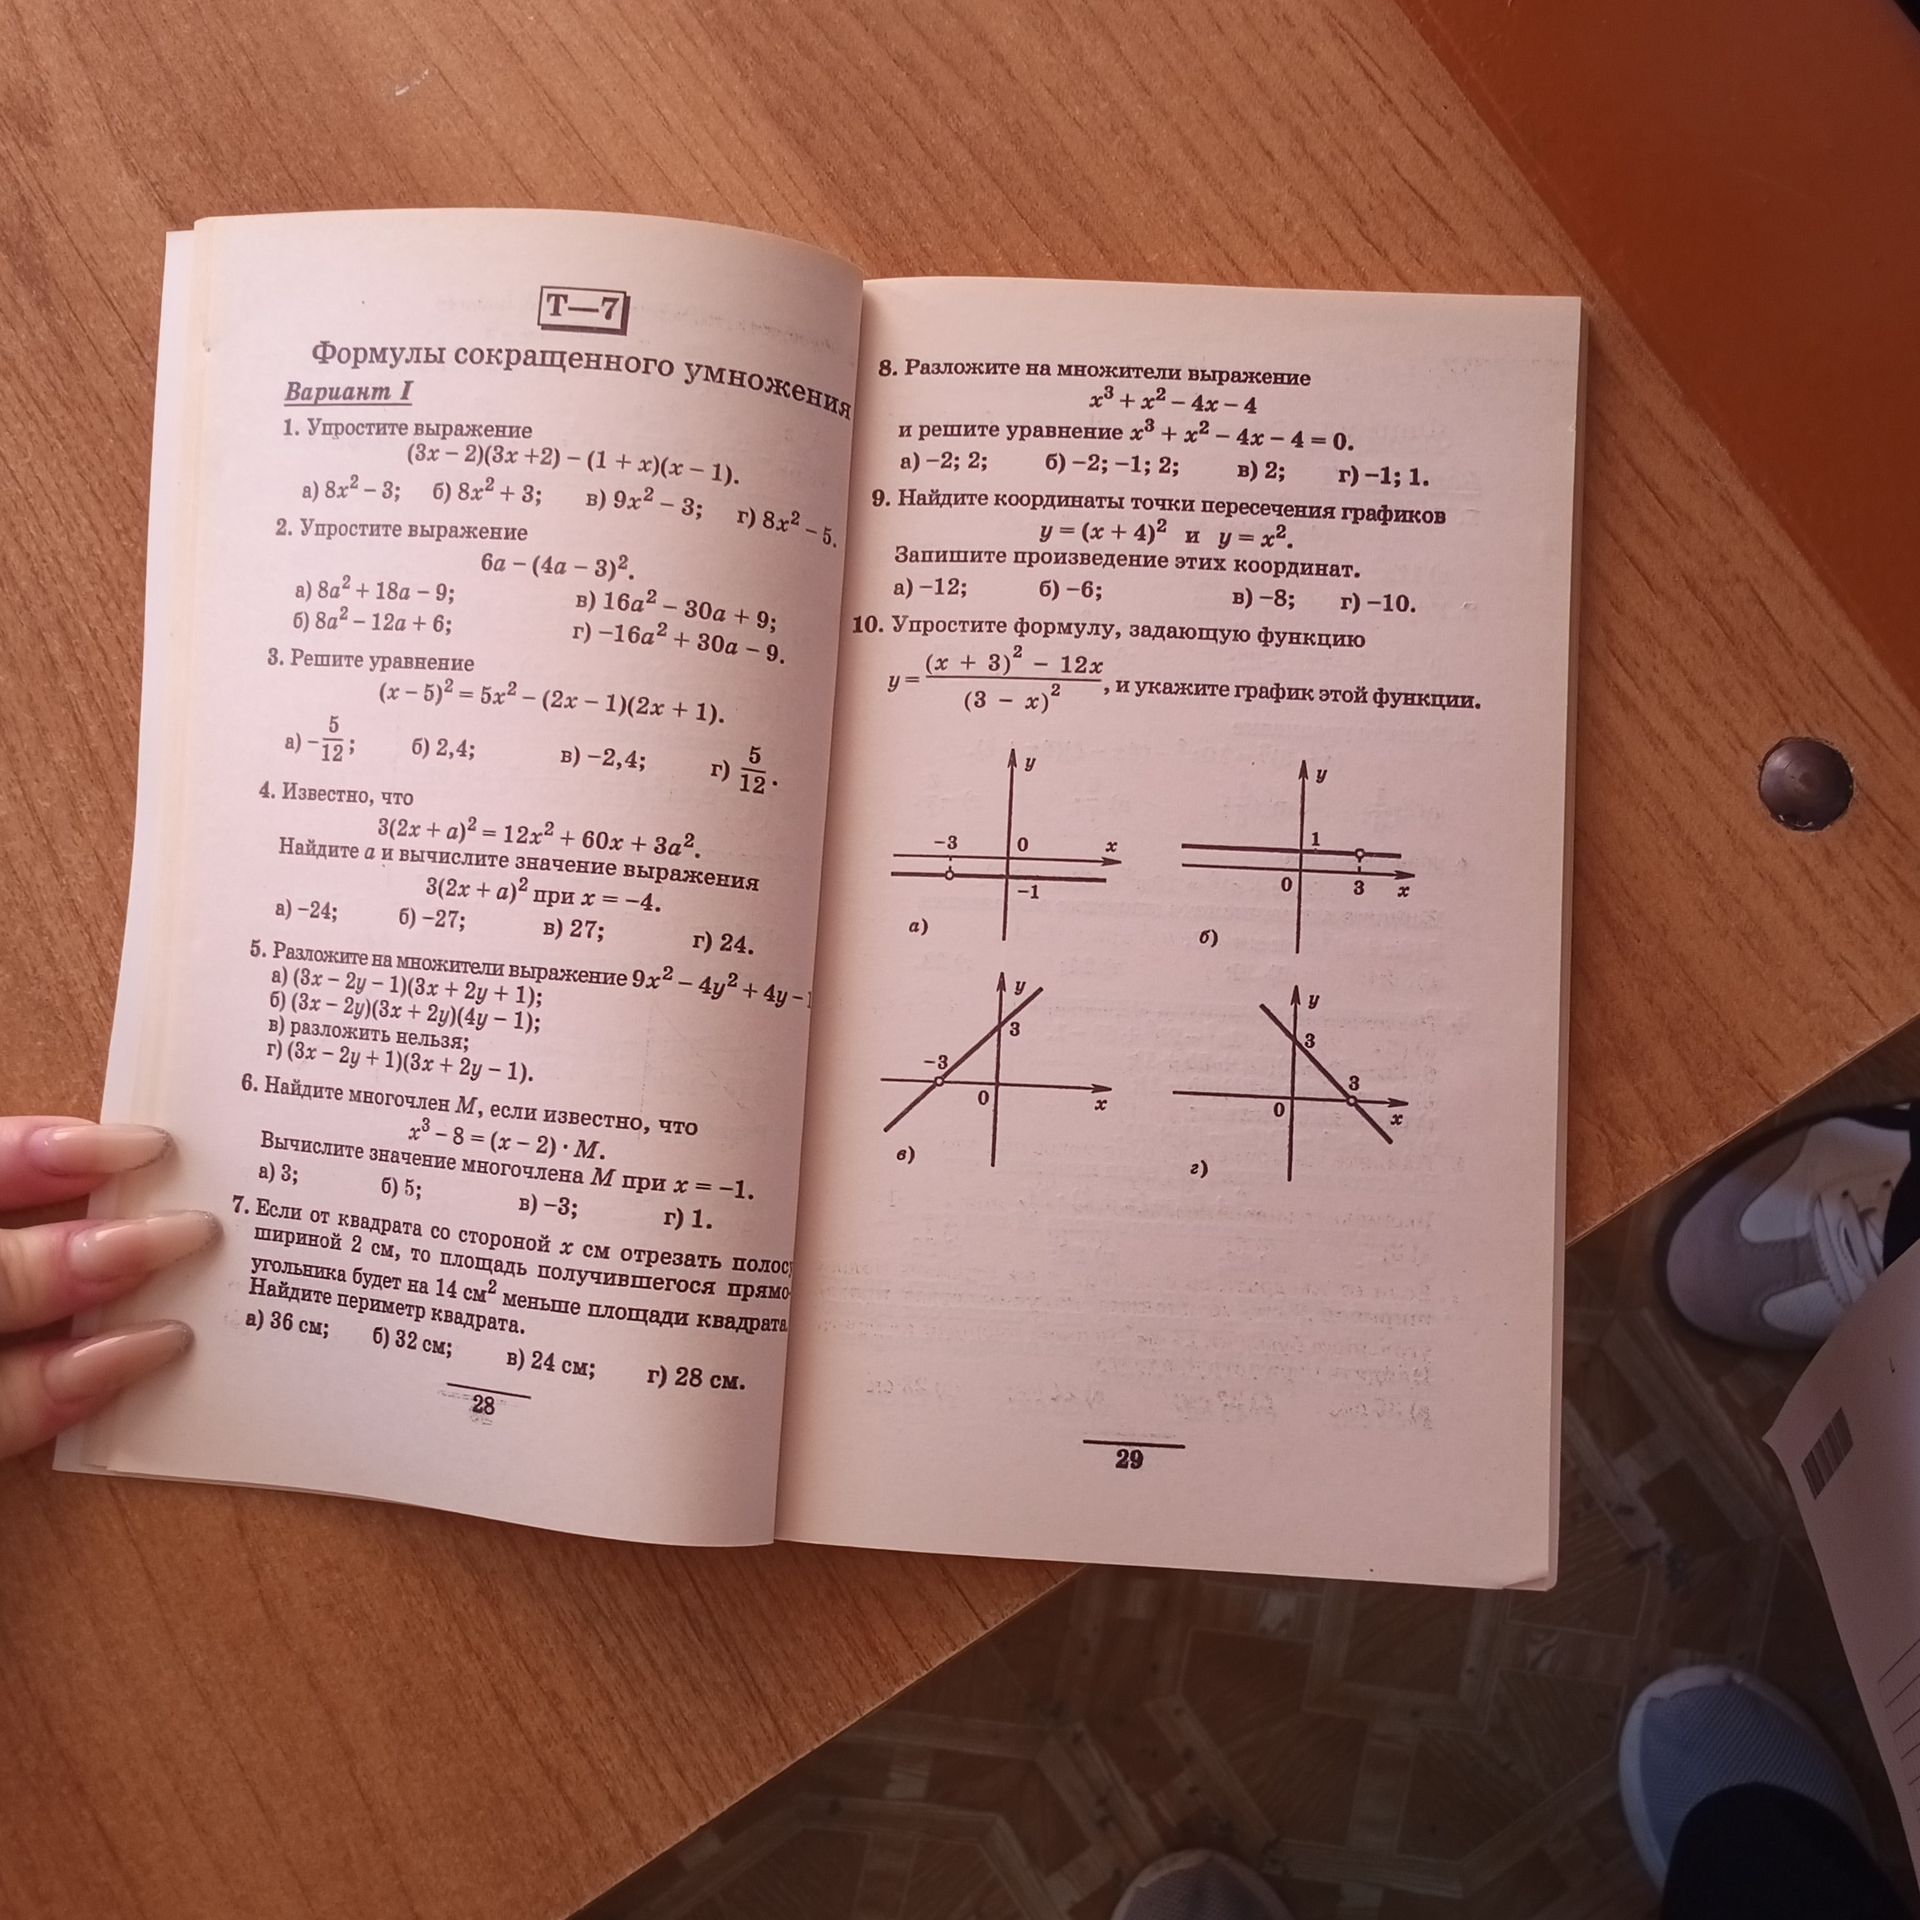 Т—7
Формулы сокращенного умножения
Вариант I
1. Упростите выражение
(3x – 2)(3x +2) – (1 + x)(x – 1).
а) 8x² – 3; б) 8x² + 3; в) 9x² – 3; г) 8x² – 5.
2. Упростите выражение
6a – (4a – 3)².
а) 8a² + 18a – 9; в) 16a² – 30a + 9;
б) 8a² – 12a + 6; г) –16a² + 30a – 9.
3. Решите уравнение
(x – 5)² = 5x² – (2x – 1)(2x + 1).
а) –5/12; б) 2,4; в) –2,4; г) 5/12.
4. Известно, что
3(2x + a)² = 12x² + 60x + 3a².
Найдите a и вычислите значение выражения
3(2x + a)² при x = –4.
а) –24; б) –27; в) 27; г) 24.
5. Разложите на множители выражение 9x² – 4y² + 4y – 1
а) (3x – 2y – 1)(3x + 2y + 1);
б) (3x – 2y)(3x + 2y)(4y – 1);
в) разложить нельзя;
г) (3x – 2y + 1)(3x + 2y – 1).
6. Найдите многочлен M, если известно, что
x³ – 8 = (x – 2) · M.
Вычислите значение многочлена M при x = –1.
а) 3; б) 5; в) –3; г) 1.
7. Если от квадрата со стороной x см отрезать полосу
шириной 2 см, то площадь получившегося прямо-
угольника будет на 14 см² меньше площади квадрата
Найдите периметр квадрата.
а) 36 см; б) 32 см; в) 24 см; г) 28 см.
28
8. Разложите на множители выражение
x³ + x² – 4x – 4
и решите уравнение x³ + x² – 4x – 4 = 0.
а) –2; 2; б) –2; –1; 2; в) 2; г) –1; 1.
9. Найдите координаты точки пересечения графиков
y = (x + 4)² и y = x².
Запишите произведение этих координат.
а) –12; б) –6; в) –8; г) –10.
10. Упростите формулу, задающую функцию
y = ((x + 3)² – 12x)/(3 – x)², и укажите график этой функции.
y
–3 0 x
–1
а)
y
1
0 3 x
б)
y
3
–3
0 x
в)
y
3
3
0 x
г)
29